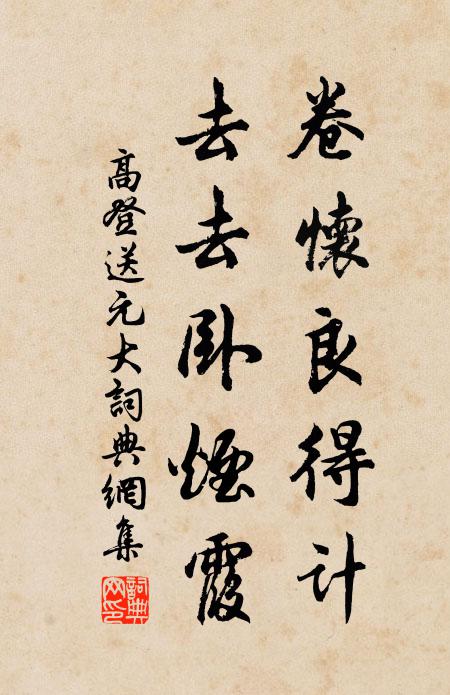 卷懷良得計
去去卧煙霞
高登送元大詞典網集
詞典网印